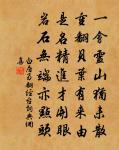 一會靈山猶未散
重翻貝葉有來由
是名精進才開眼
岩石無端亦點頭
白居易翻經台詩